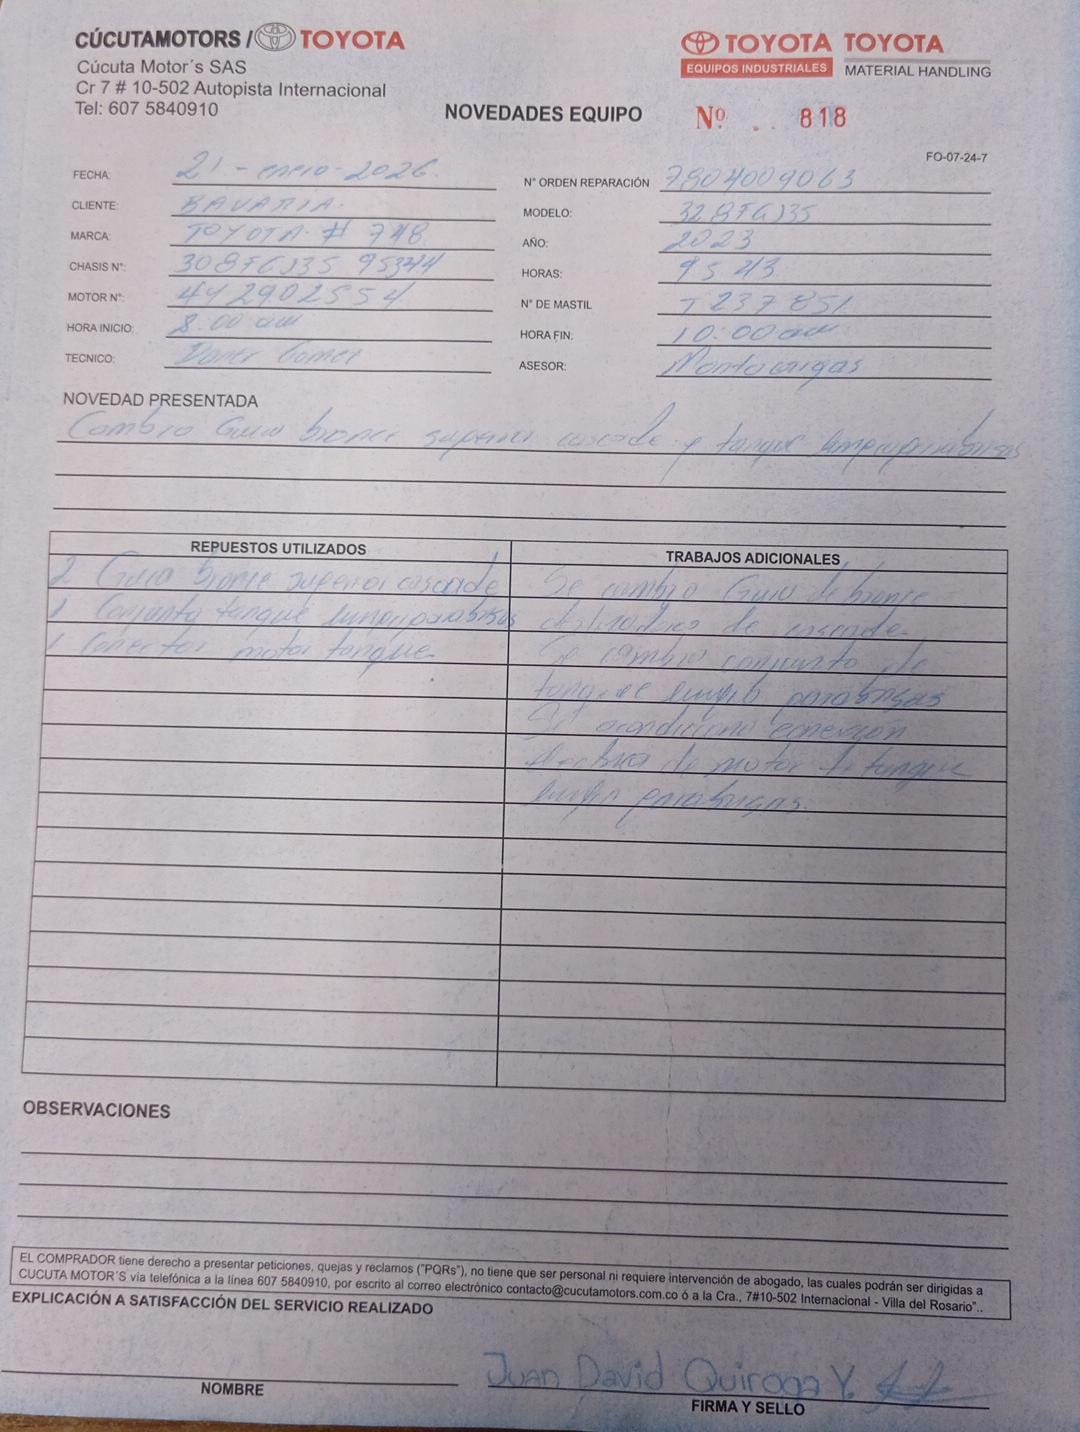 CÚCUTAMOTORS / TOYOTA
Cúcuta Motor´s SAS
Cr 7 # 10-502 Autopista Internacional
Tel: 607 5840910
TOYOTA TOYOTA
EQUIPOS INDUSTRIALES MATERIAL HANDLING
NOVEDADES EQUIPO Nº. 818
FO-07-24-7
FECHA: 21 - enero - 2026
N° ORDEN REPARACIÓN 7804009063
CLIENTE: BAVARIA.
MODELO: 328FGJ35
MARCA: TOYOTA # 748
AÑO: 2023
CHASIS N°: 308FGJ35 95344
HORAS: 9543
MOTOR N°: 442902554
N° DE MASTIL T237851
HORA INICIO: 8:00 am
HORA FIN: 10:00 am
TECNICO: Gomez
ASESOR:
NOVEDAD PRESENTADA
Cambio Guia bronce superior cascade y tanque limpiaparabrisas
REPUESTOS UTILIZADOS
2 Guia bronce superior cascade
1 Conjunto tanque limpiaparabrisas
1 Conector motor tanque
TRABAJOS ADICIONALES
Se cambio Guia de bronce
de cascade.
Se cambio conjunto de
tanque limpia parabrisas
Se acondiciono conexion
electrica de motor de tanque
limpia parabrisas.
OBSERVACIONES
EL COMPRADOR tiene derecho a presentar peticiones, quejas y reclamos ("PQRs"), no tiene que ser personal ni requiere intervención de abogado, las cuales podrán ser dirigidas a
CUCUTA MOTOR´S vía telefónica a la línea 607 5840910, por escrito al correo electrónico contacto@cucutamotors.com.co ó a la Cra., 7#10-502 Internacional - Villa del Rosario"..
EXPLICACIÓN A SATISFACCIÓN DEL SERVICIO REALIZADO
Juan David Quiroga Y.
NOMBRE
FIRMA Y SELLO